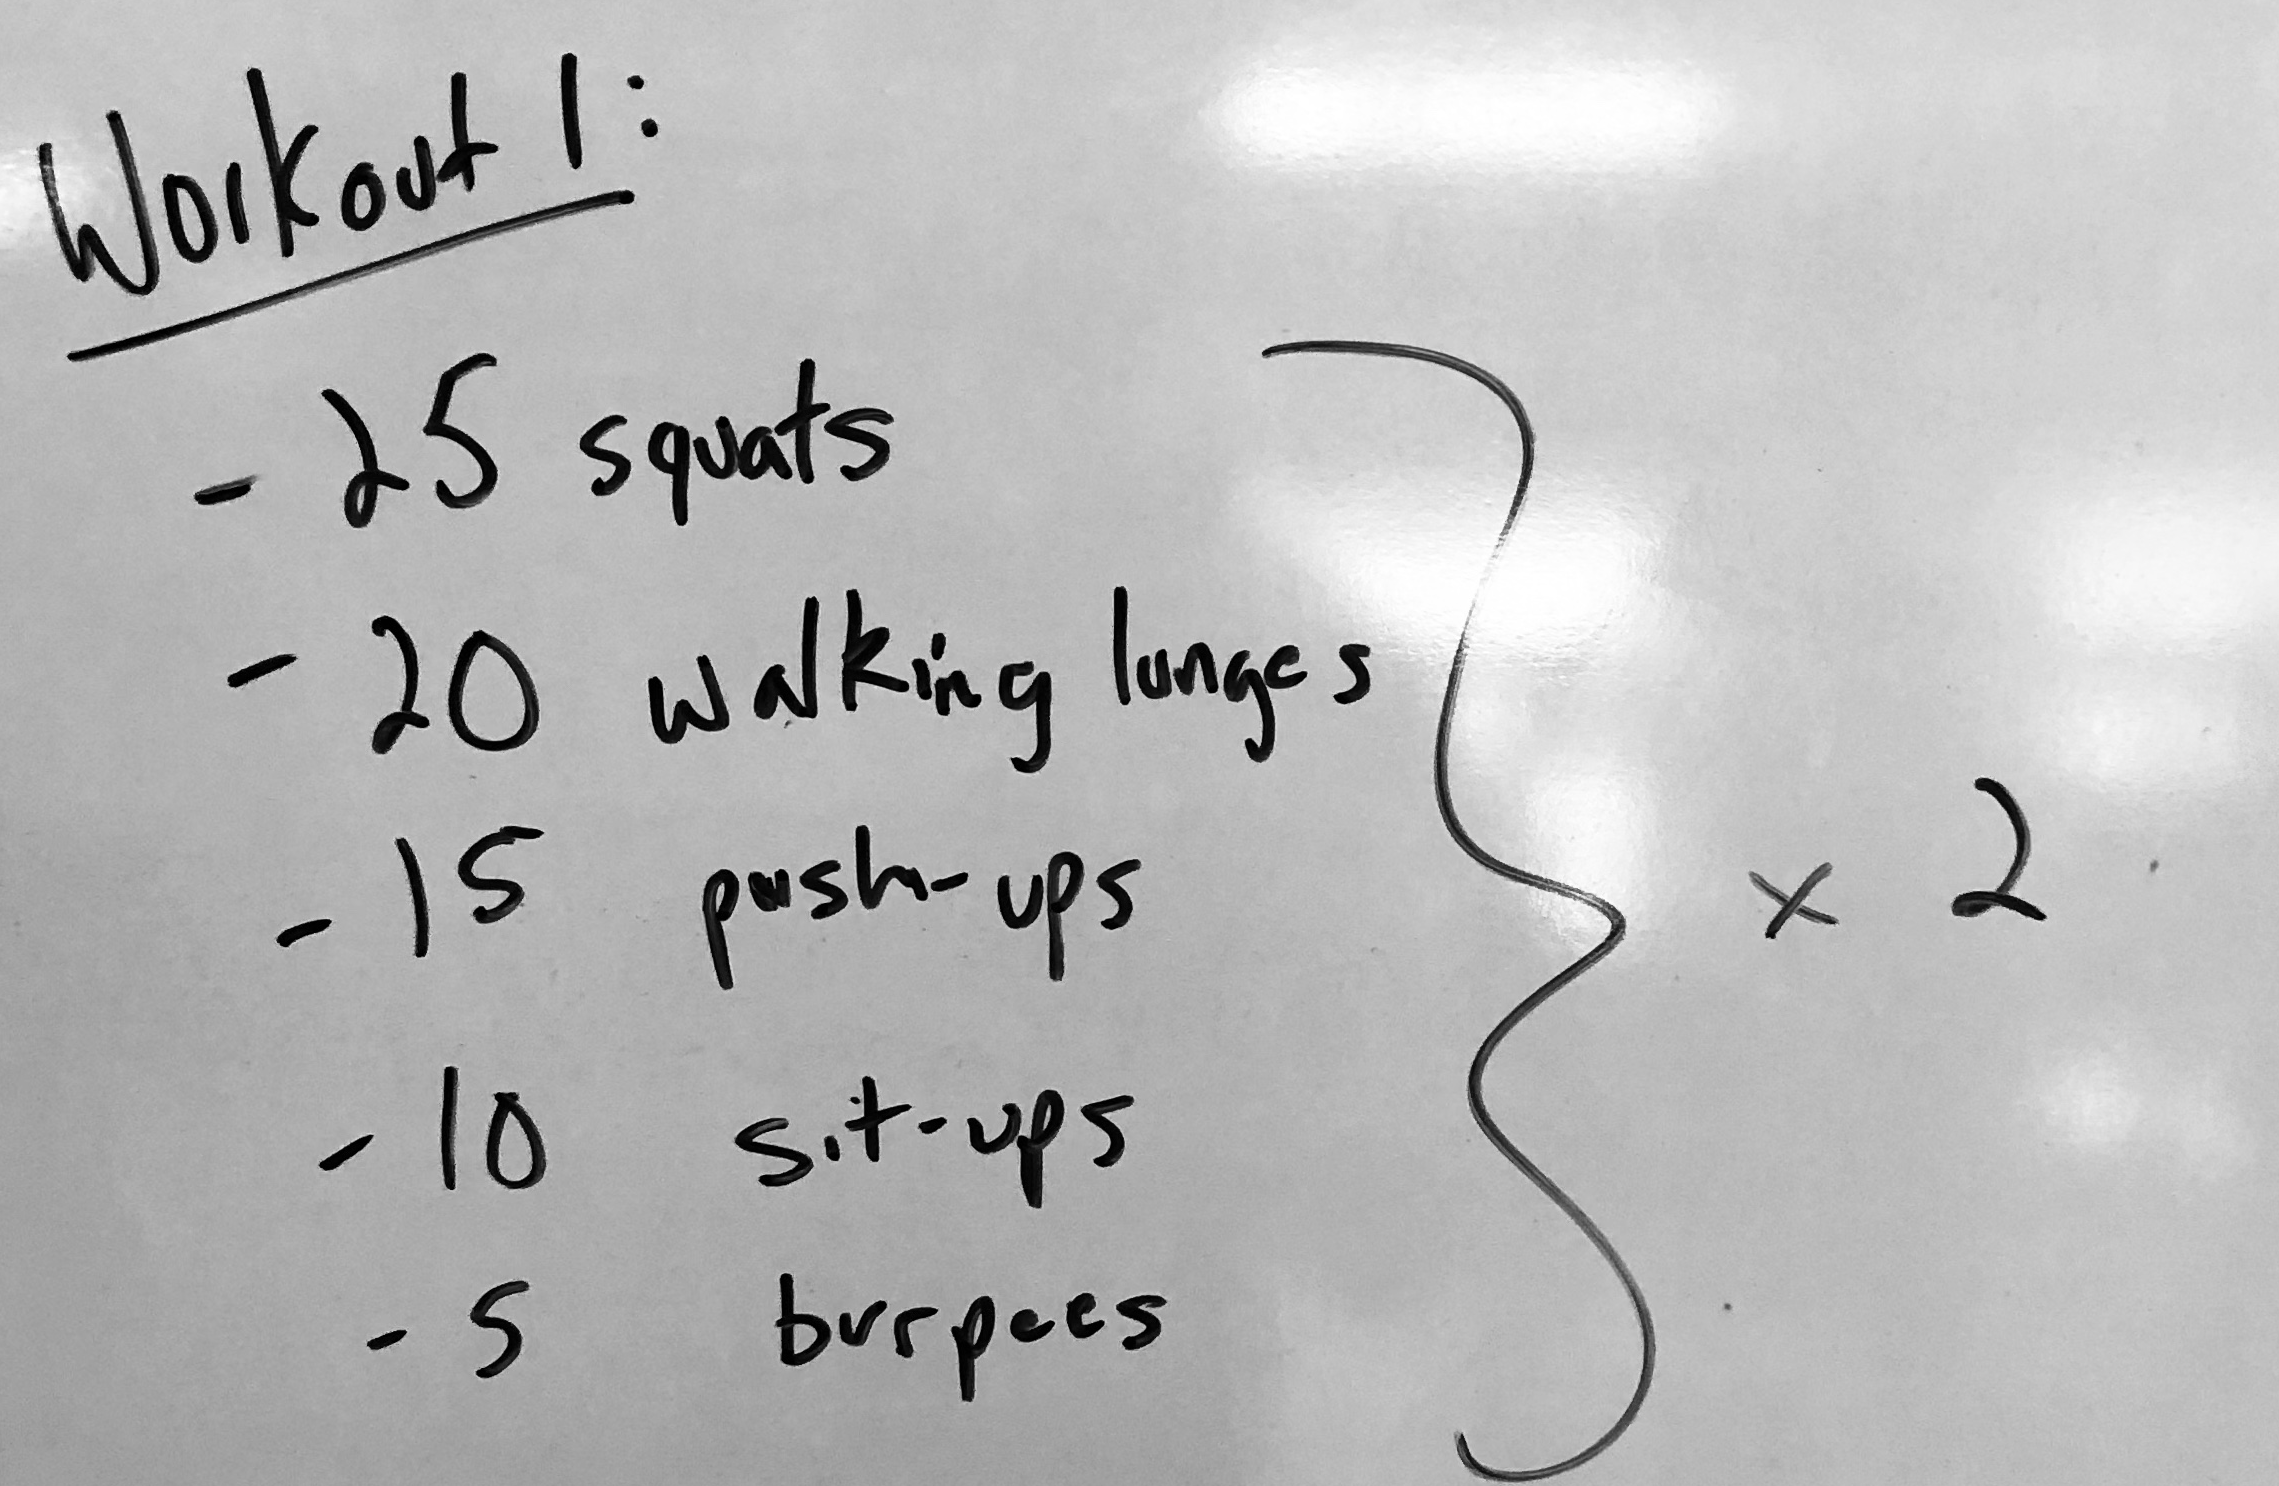 Workout 1:
- 25 squats
- 20 walking lunges
- 15 push-ups
- 10 sit-ups
- 5 burpees
} x 2